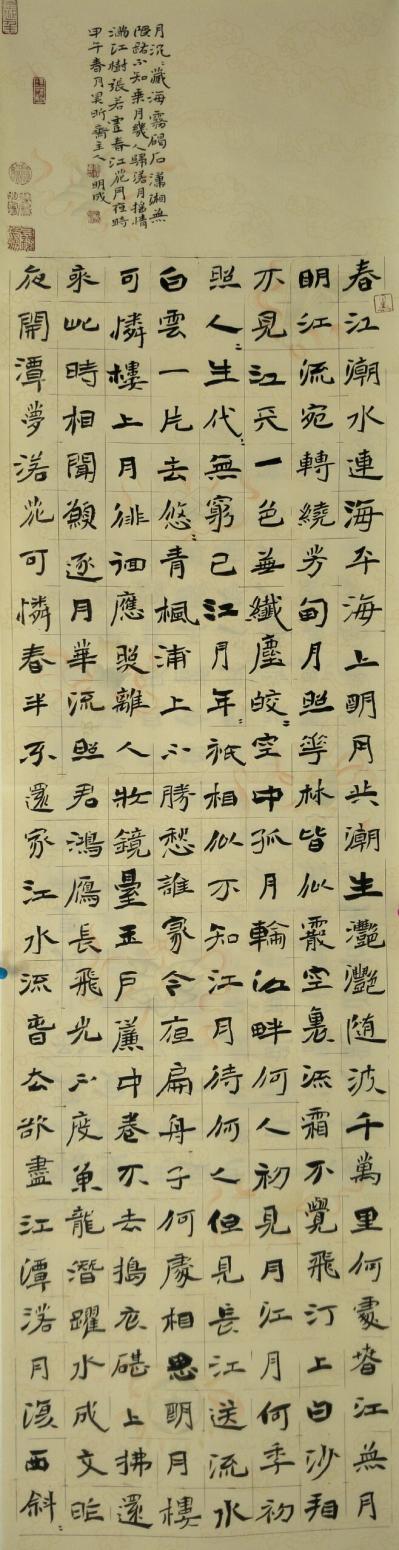 春江潮水連海平海上明月共潮生灧灧随波千萬里何處萅江無月
明江流宛轉繞芳甸月照華林皆似霰空裏流霜不覺飛汀上白沙看
不見江天一色無纖塵皎〻空中孤月輪江畔何人初見月江月何年初
照人〻生代〻無窮已江月年〻祇相似不知江月待何人但見長江送流水
白雲一片去悠〻青楓浦上不勝愁誰家今夜扁舟子何處相思明月樓
可憐樓上月徘徊應照離人妝鏡臺玉戶簾中卷不去搗衣碪上拂還
來此時相聞願逐月華流照君鴻鴈長飛光不度魚龍潛躍水成文昨
夜閒潭夢落花可憐春半不還家江水流萅去欲盡江潭落月復西斜〻
月沉〻藏海霧碣石瀟湘無
限路不知乘月幾人歸落月搖情
滿江樹張若虛春江花月夜時
甲午春月昊昕齋主人明成